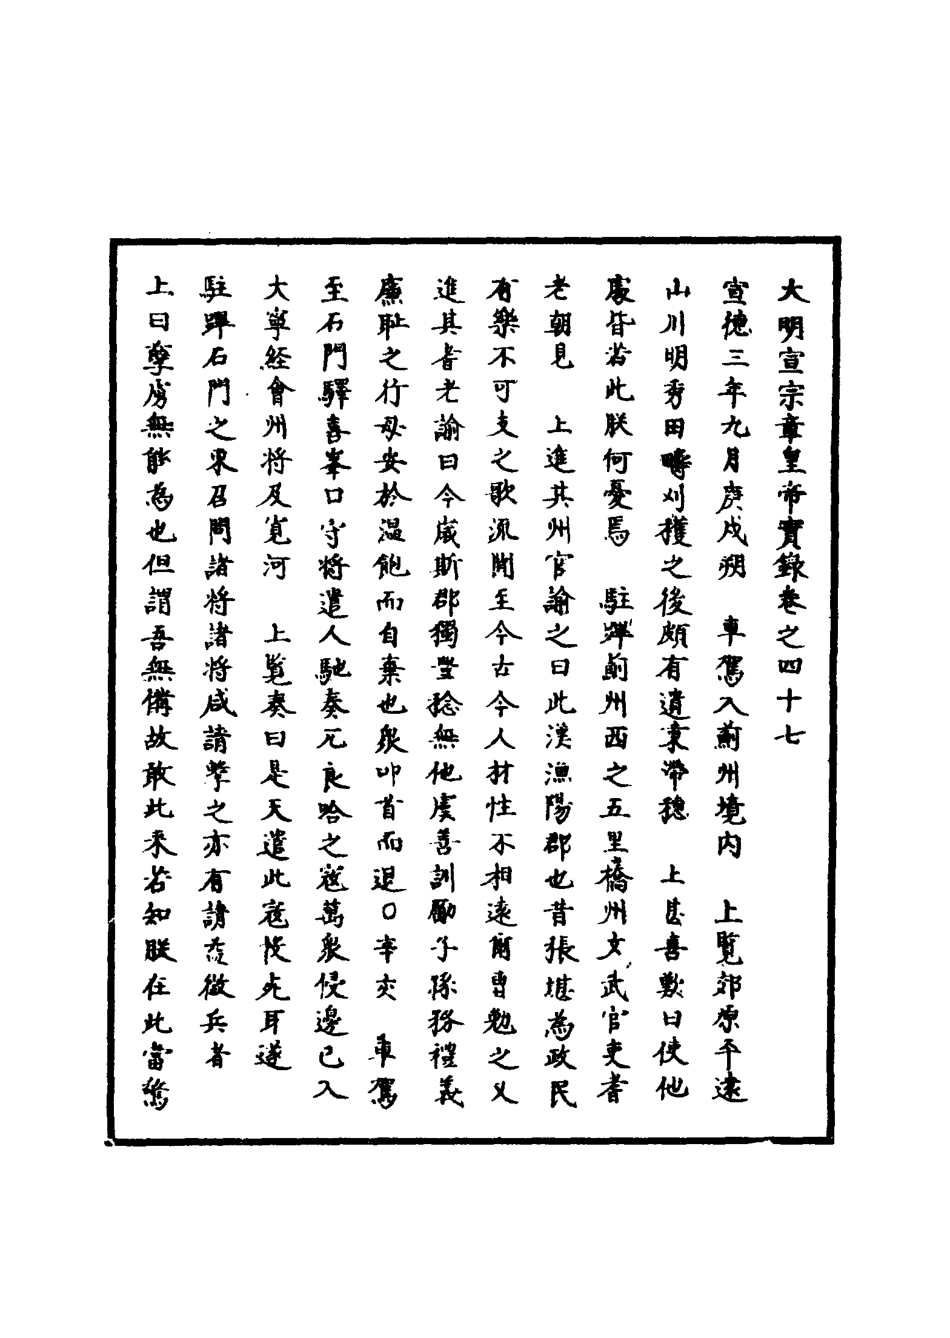 大明宣宗章皇帝實錄卷之四十七
宣德三年九月庚戌朔　車駕入薊州境内　上覽郊原平遠
山川明秀田疇刈穫之後頗有遺秉滯穗　上甚喜歎曰使他
處皆若此朕何憂焉　駐蹕薊州西之五里橋州文武官吏耆
老朝見　上進其州官諭之曰此漢漁陽郡也昔張堪為政民
有樂不可支之歌流聞至今古今人材性不相遠爾曹勉之又
進其耆老諭曰今歲斯郡獨豐稔無他虞善訓勵子孫務禮義
廉耻之行毋安於温飽而自棄也衆叩首而退○辛亥　車駕
至石門驛喜峯口守将遣人馳奏兀良哈之寇萬衆侵邊已入
大寧經會州将及寬河　上覽奏曰是天遣此寇投死耳遂
駐蹕石門之東召問諸将諸将咸請擊之亦有請益徵兵者
上曰孽虜無能為也但謂吾無備故敢此来若知朕在此當驚